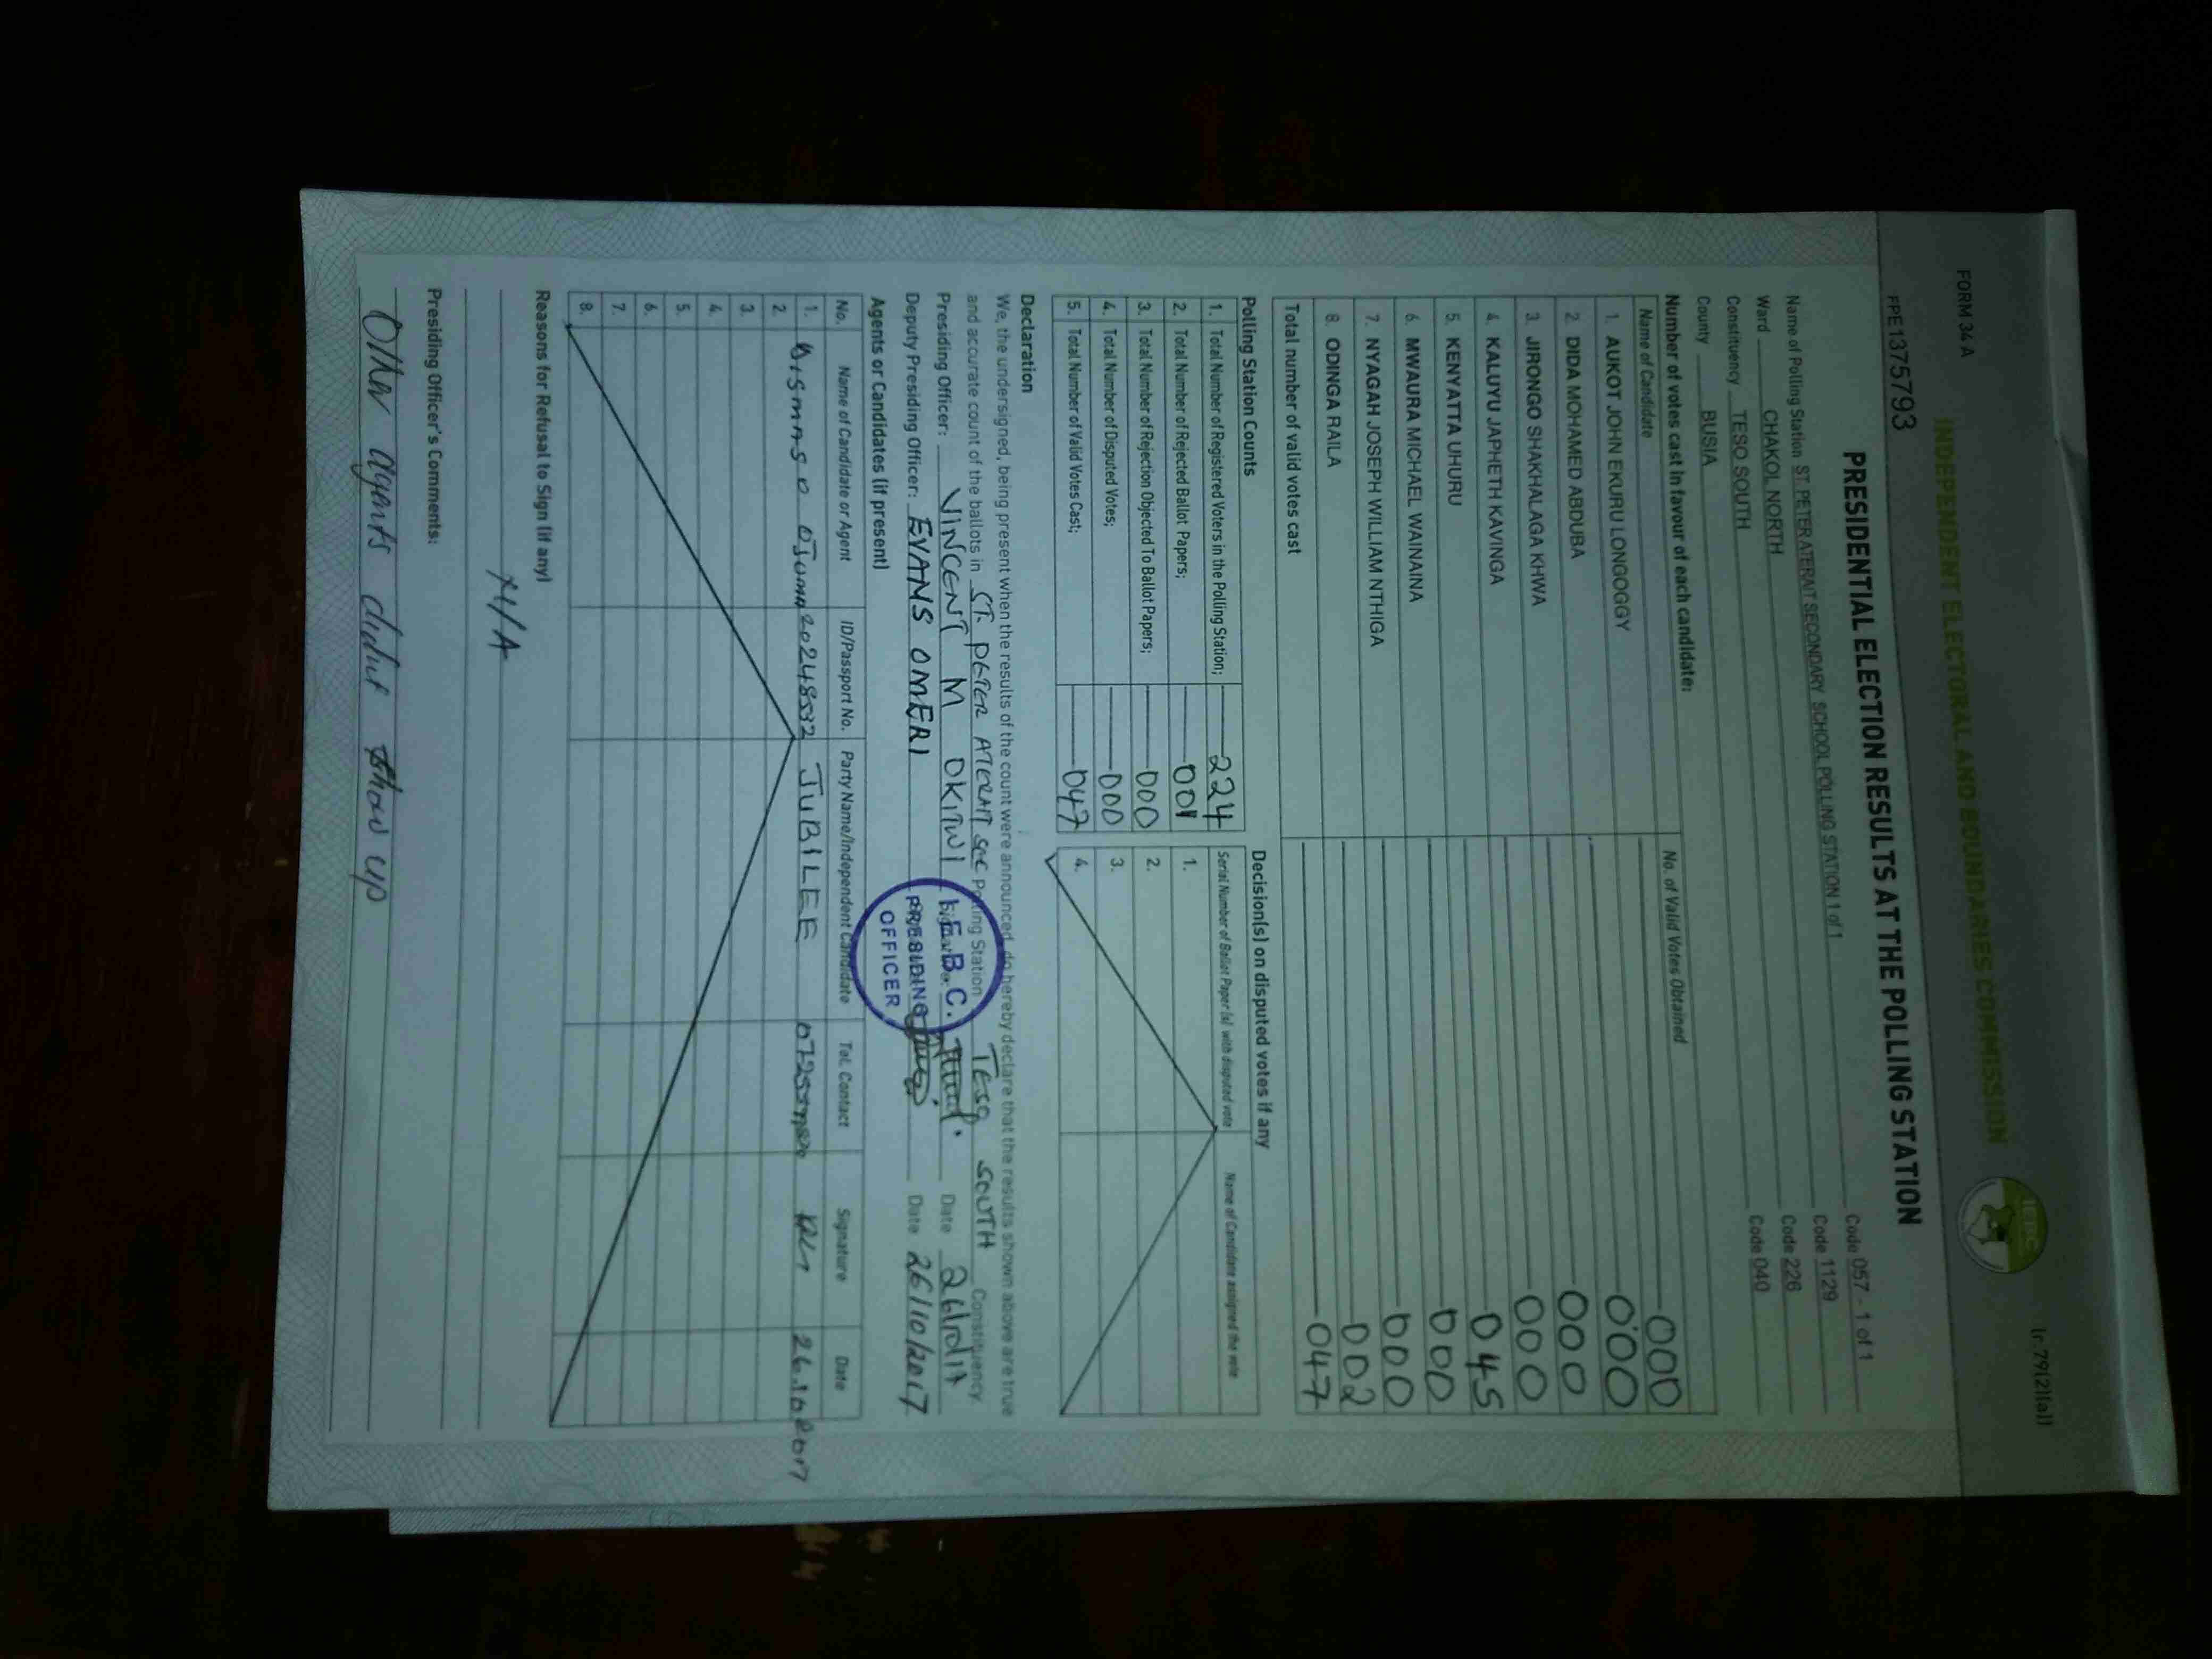 FORM 34 A
(r.79(2)(a))
INDEPENDENT ELECTORAL AND BOUNDARIES COMMISSION
IEBC
FPE1375793
PRESIDENTIAL ELECTION RESULTS AT THE POLLING STATION
Name of Polling Station ST. PETER ATERAIT SECONDARY SCHOOL POLLING STATION 1 of 1 Code 057 - 1 of 1
Ward CHAKOL NORTH Code 1129
Constituency TESO SOUTH Code 226
County BUSIA Code 040
Number of votes cast in favour of each candidate:
Name of Candidate No. of Valid Votes Obtained
1. AUKOT JOHN EKURU LONGOGGY 000
2. DIDA MOHAMED ABDUBA 000
3. JIRONGO SHAKHALAGA KHWA 000
4. KALUYU JAPHETH KAVINGA 000
5. KENYATTA UHURU 045
6. MWAURA MICHAEL WAINAINA 000
7. NYAGAH JOSEPH WILLIAM NTHIGA 000
8. ODINGA RAILA 002
Total number of valid votes cast 047
Polling Station Counts
1. Total Number of Registered Voters in the Polling Station; 224
2. Total Number of Rejected Ballot Papers; 001
3. Total Number of Rejection Objected To Ballot Papers; 000
4. Total Number of Disputed Votes; 000
5. Total Number of Valid Votes Cast; 047
Decision(s) on disputed votes if any
Serial Number of Ballot Paper (s) with disputed vote Name of Candidate assigned the vote
1.
2.
3.
4.
Declaration
We, the undersigned, being present when the results of the count were announced, do hereby declare that the results shown above are true
and accurate count of the ballots in ST. PETER ATERAIT SEC Polling Station TESO SOUTH Constituency
Presiding Officer: VINCENT M OKITWI Date 26/10/17
Deputy Presiding Officer: EVANS OMERI Date 26/10/2017
I.E.B.C.
PRESIDING
OFFICER
Agents or Candidates (if present)
No. Name of Candidate or Agent ID/Passport No. Party Name/Independent Candidate Tel. Contact Signature Date
1. JUBILEE 26.10.2017
2.
3.
4.
5.
6.
7.
8.
Reasons for Refusal to Sign (if any)
N/A
Presiding Officer's Comments:
Other agents didnt show up